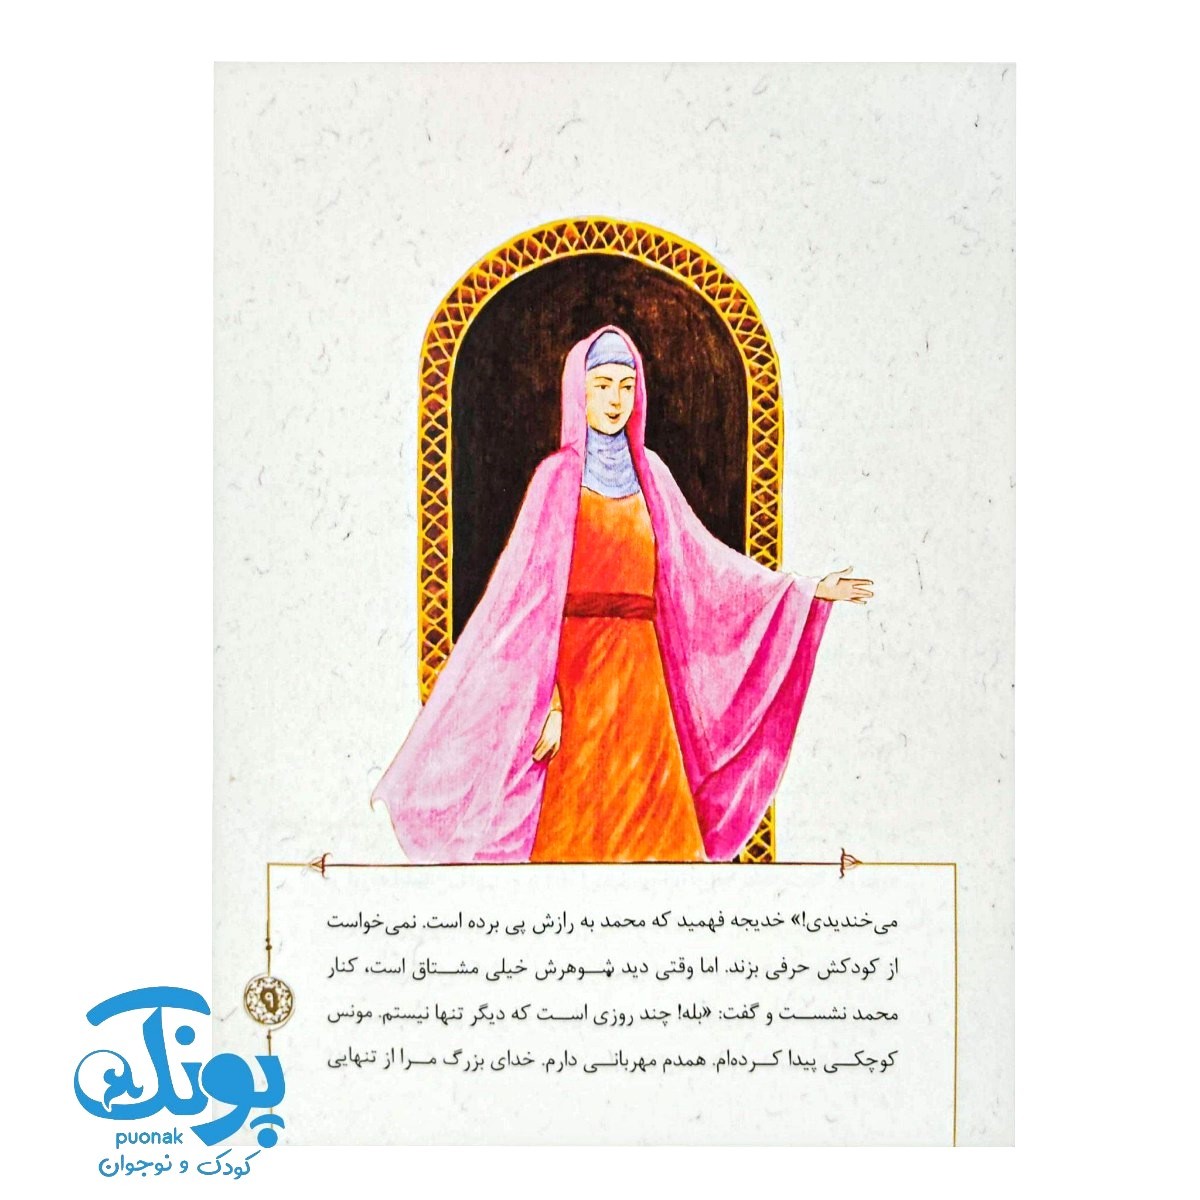 می‌خندیدی!» خدیجه فهمید که محمد به رازش پی برده است. نمی‌خواست
از کودکش حرفی بزند. اما وقتی دید شوهرش خیلی مشتاق است، کنار
محمد نشست و گفت: «بله! چند روزی است که دیگر تنها نیستم. مونس
کوچکی پیدا کرده‌ام. همدم مهربانی دارم. خدای بزرگ مرا از تنهایی
۹
پونک
puonak
کودک و نوجوان